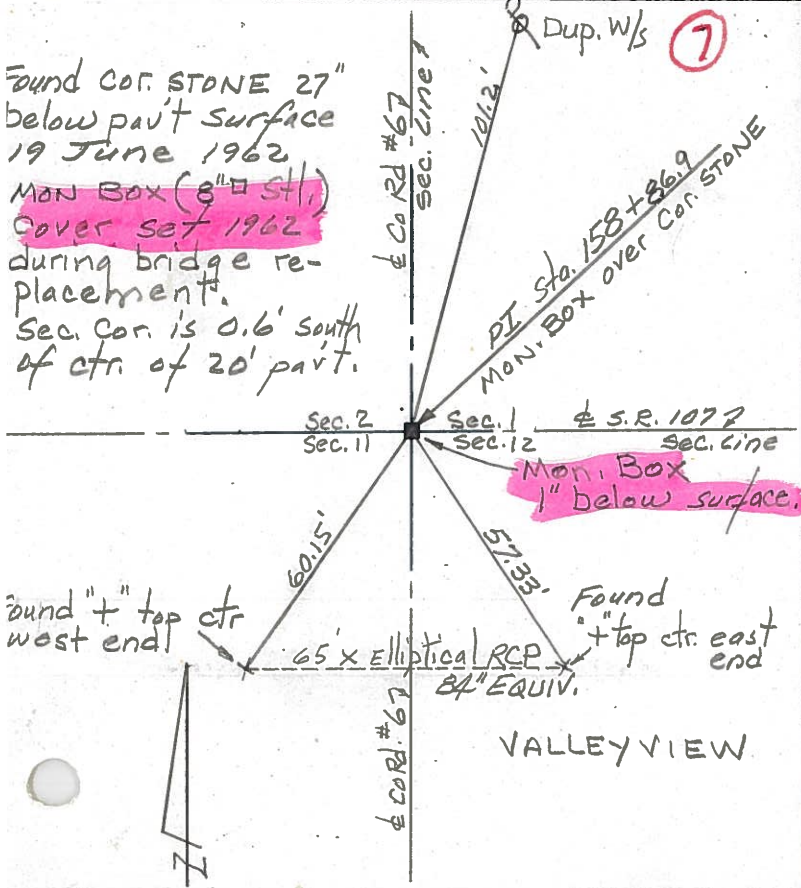 Dup. W/s
7
Found Cor. STONE 27"
below pav't surface
19 June 1962
MON BOX (8"□ Stl.)
Cover set 1962
during bridge re-
placement.
Sec. Cor. is 0.6' south
of ctr. of 20' pav't.
℄ Co Rd #67
Sec. Line
101.2'
PI Sta. 158+86.9
MON. BOX over Cor. STONE
Sec. 2
Sec. 11
Sec. 1
Sec. 12
℄ S.R. 1077
Sec. Line
Mon. Box
1" below surface.
60.15'
57.33'
Found "+" top ctr
west end
Found
"+" top ctr. east
end
65' x Elliptical RCP
84" EQUIV.
℄ Co Rd. #67
VALLEYVIEW
N